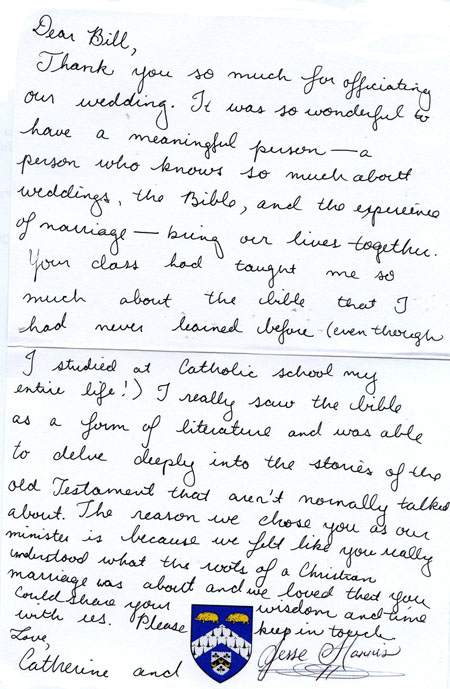 Dear Bill,
Thank you so much for officiating
our wedding. It was so wonderful to
have a meaningful person — a
person who knows so much about
weddings, the Bible, and the experience
of marriage — bring our lives together.
Your class had taught me so
much about the bible that I
had never learned before (even though
I studied at Catholic school my
entire life!) I really saw the bible
as a form of literature and was able
to delve deeply into the stories of the
old Testament that aren't normally talked
about. The reason we chose you as our
minister is because we felt like you really
understood what the roots of a Christian
marriage was about and we loved that you
could share your wisdom and time
with us. Please keep in touch
Love,
Catherine and Jesse Harris